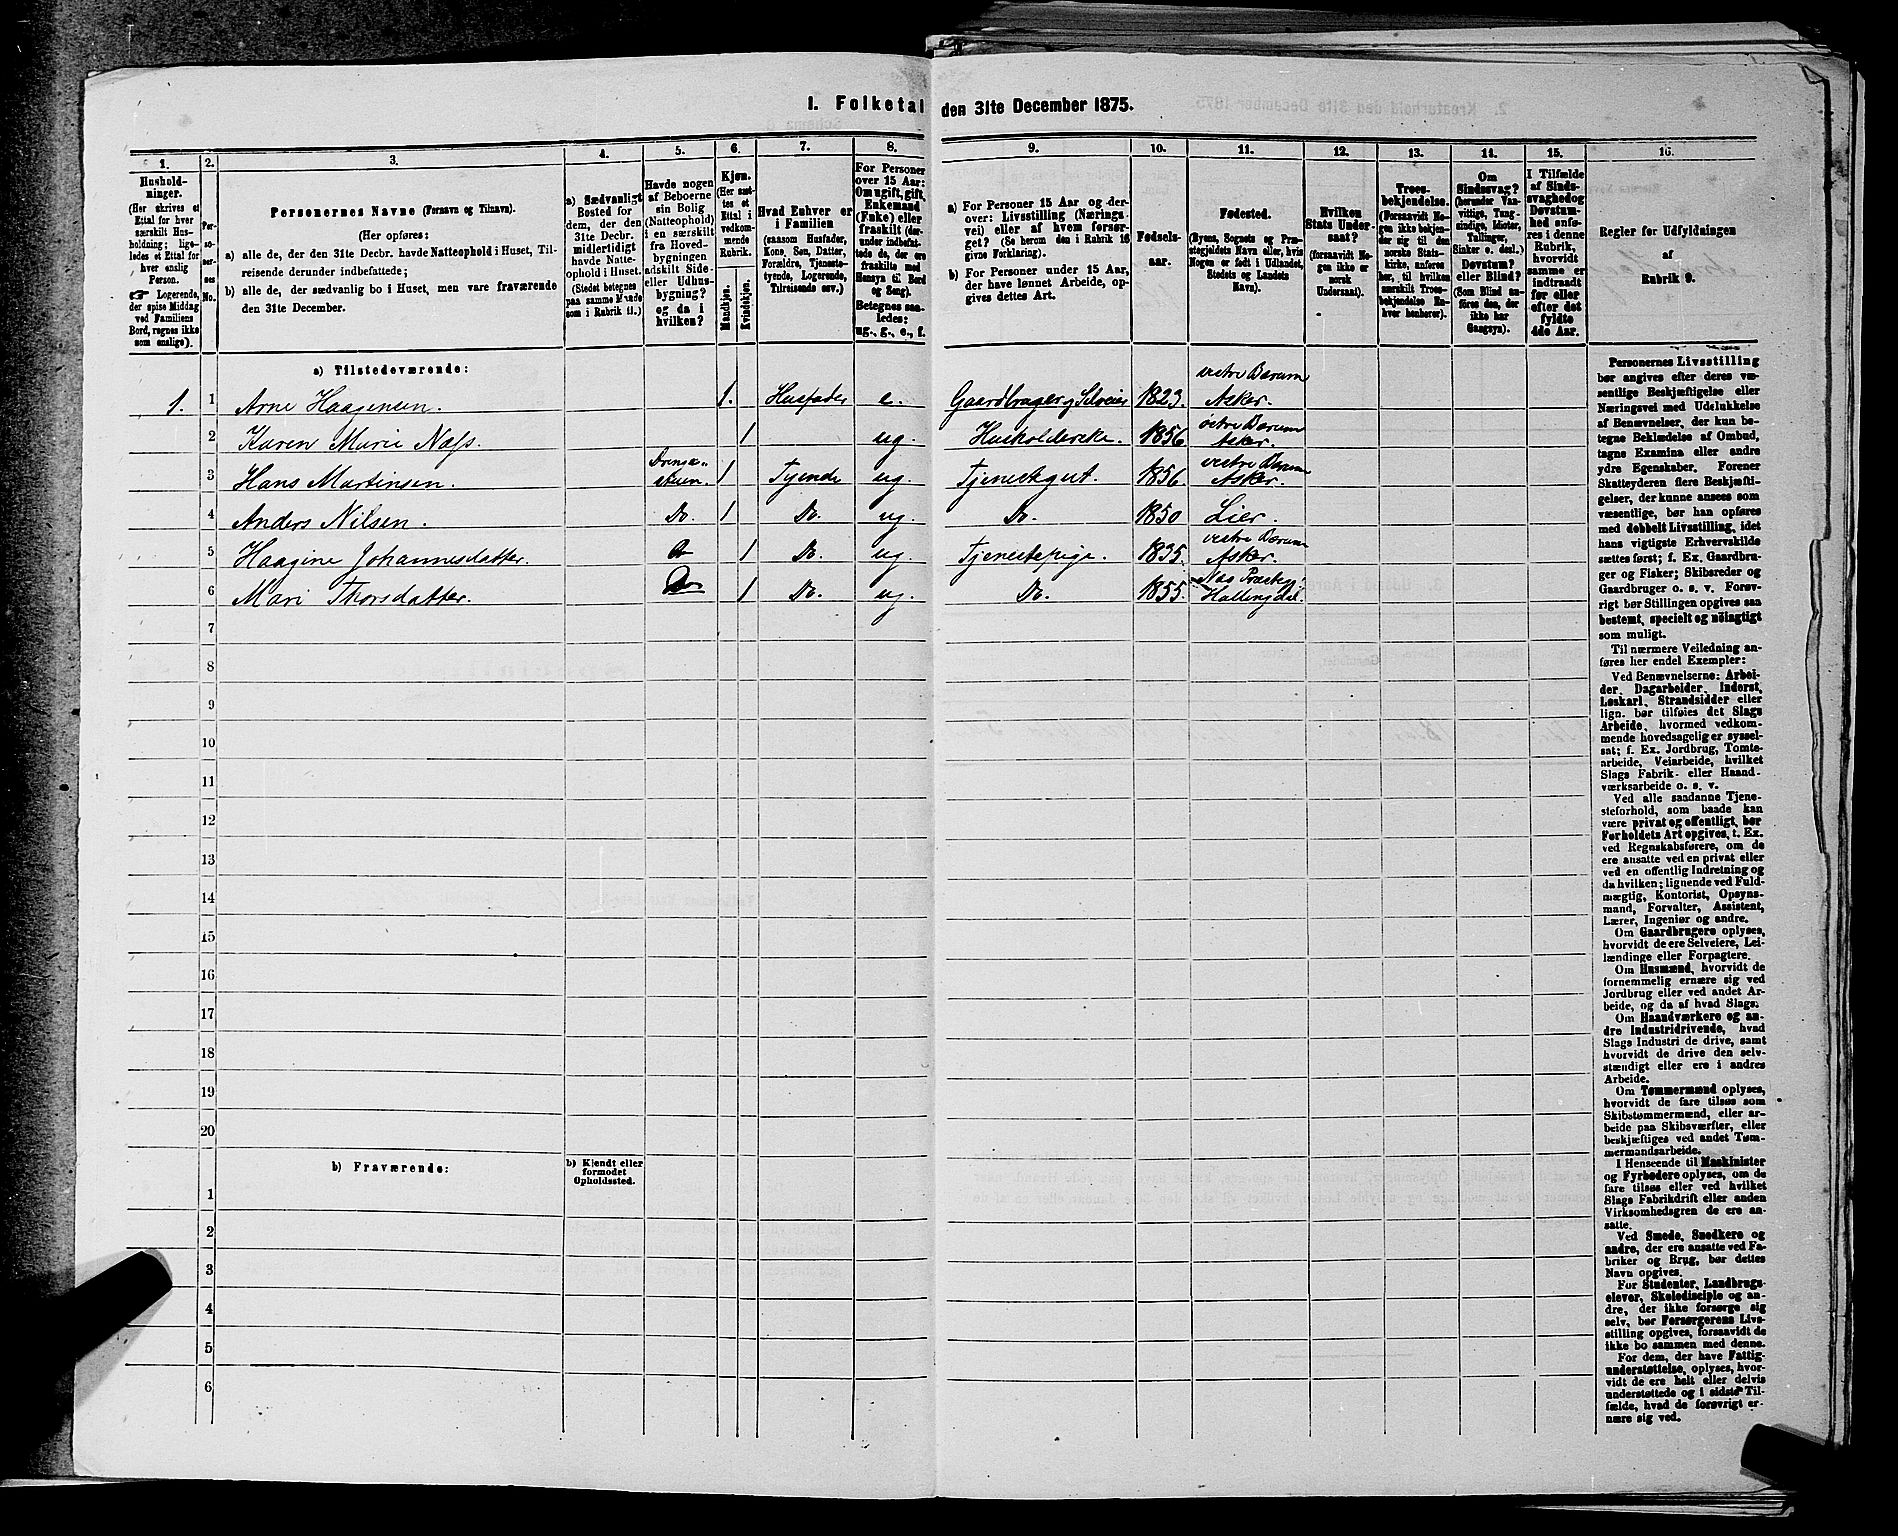 1. Folketal den 31te December 1875.
1.
Hushold-
ninger.
(Her skrives et
Ettal for hver
særskilt Hus-
holdning; lige-
ledes et Ettal for
hver enslig
Person.
☞ Logerende,
der spise Middag
ved Familiens
Bord, regnes ikke
som enslige).
2.
Per-
so-
ner-
nes
No.
3.
Personernes Navne (Fornavn og Tilnavn).
(Her opføres:
a) alle de, der den 31te Decbr. havde Natteophold i Huset, Til-
reisende derunder indbefattede;
b) alle de, der sædvanlig bo i Huset, men vare fraværende
den 31te December.
4.
a) Sædvanligt
Bosted for
dem, der den
31te Decbr.
midlertidigt
havde Natte-
ophold i Huset.
(Stedet betegnes
paa samme Maade
som i Rubrik 11.)
5.
Havde nogen
af Beboerne
sin Bolig
(Natteophold)
i en særskilt
fra Hoved-
bygningen
adskilt Side-
eller Udhus-
bygning?
og da i
hvilken?
6.
Kjøn.
(Her sæt-
tes et
Ettal i
vedkom-
mende
Rubrik.
Mandkjøn.
Kvindekjøn.
7.
Hvad Enhver er
i Familien
(saasom Husfader,
Kone, Søn, Datter,
Forældre, Tjeneste-
tyende, Logerende,
Tilreisende osv.)
8.
For Personer
over 15 Aar:
Om ugift, gift,
Enkemand
(Enke) eller
fraskilt (der-
under indbefat-
tede de, der ere
fraskilte med
Hensyn til Bord
og Seng).
Betegnes saa-
ledes:
ug., g., e., f.
9.
a) For Personer 15 Aar og der-
over: Livsstilling (Nærings-
vei) eller af hvem forsør-
get? (Se herom den i Rubrik 16
givne Forklaring).
b) For Personer under 15 Aar,
der have lønnet Arbeide, op-
gives dettes Art.
10.
Fødsels-
aar.
11.
Fødested.
(Byens, Sognets og Præ-
stegjeldets Navn eller, hvis
Nogen er født i Udlandet,
Stedets og Landets
Navn).
12.
Hvilken
Stats Under-
saat?
(forsaavidt No-
gen ikke er
norsk
Undersaat).
13.
Troes-
bekjendelse.
(Forsaavidt No-
gen ikke bekjen-
der sig til den
norske Stats-
kirke, anføres
her, til hvilken
særskilt Troes-
bekjendelse En-
hver henhører).
14.
Om
Sindssvag?
(herunder Van-
vittige, Tung-
sindige, Idioter,
Tullinger,
Sinker o. desl.)
Døvstum?
eller Blind?
(Som Blind an-
føres den, der
ikke har
Gangsyn).
15.
I Tilfælde
af Sinds-
svaghed og
Døvstum-
hed anfø-
res i denne
Rubrik,
hvorvidt
samme er
indtraadt
før eller
efter det
fyldte
4de Aar.
16.
Regler for Udfyldningen
af
Rubrik 9.
a) Tilstedeværende:
vestre Bærum
1. 1 Arne Haagensen. 1. Husfader e. Gaardbruger og Selveier 1823. Asker.
østre Bærum
2 Karen Marie Næss. 1 ug. Husholderske. 1856 Asker.
Drenge- vestre Bærum
3 Hans Martinsen. stuen. 1 Tyende ug. Tjenestgut. 1856. Asker.
4 Anders Nilsen. Do. 1 Do. ug. Do. 1850 Lier.
vestre Bærum
5 Haagine Johannesdatter. 1 Do. ug. Tjenestepige. 1835. Asker.
Næs Præstegj.
6 Mari Thorsdatter. Do 1 Do. ug. Do. 1855. Hallingdal.
7
8
9
10
11
12
13
14
15
16
17
18
19
20
b) Fraværende:
b) Kjendt eller
formodet
Opholdssted.
1
2
3
4
5
6
Personernes Livsstilling
bør angives efter deres væ-
sentlige Beskjæftigelse eller
Næringsvei med Udelukkelse
af Benævnelser, der kun be-
tegne Beklædelse af Ombud,
tagne Examina eller andre
ydre Egenskaber. Forener
Skatteyderen flere Beskjæfti-
gelser, der kunne ansees som
væsentlige, bør han opføres
med dobbelt Livsstilling, idet
hans vigtigste Erhvervskilde
sættes først; f. Ex. Gaardbru-
ger og Fisker; Skibsreder og
Gaardbruger o. s. v. Forøv-
rigt bør Stillingen opgives saa
bestemt, specielt og nöiagtigt
som muligt.
Til nærmere Veiledning an-
føres her endel Exempler:
Ved Benævnelserne: Arbei-
der, Dagarbeider, Inderst,
Løskarl, Strandsidder eller
lign. bør tilføies det Slags
Arbeide, hvormed vedkom-
mende hovedsagelig er syssel-
sat; f. Ex. Jordbrug, Tomte-
arbeide, Veiarbeide, hvilket
Slags Fabrik- eller Haand-
værksarbeide o. s. v.
Ved alle saadanne Tjene-
steforhold, som baade kan
være privat og offentligt, bør
Forholdets Art opgives, t. Ex.
ved Regnskabsførere, om de
ere ansatte ved en privat eller
ved en offentlig Indretning og
da hvilken; lignende ved Fuld-
mægtig, Kontorist, Opsyns-
mand, Forvalter, Assistent,
Lærer, Ingeniør og andre.
Om Gaardbrugere oplyses,
hvorvidt de ere Selveiere, Lei-
lændinge eller Forpagtere.
Om Husmænd, hvorvidt de
fornemmelig ernære sig ved
Jordbrug eller ved andet Ar-
beide, og da af hvad Slags.
Om Haandværkere og an-
dre Industridrivende, hvad
Slags Industri de drive, samt
hvorvidt de drive den selv-
stændigt eller ere i andres
Arbeide.
Om Tømmermænd oplyses,
hvorvidt de fare tilsøs som
Skibstømmermænd, eller ar-
beide paa Skibsværfter, eller
beskjæftiges ved andet Tøm-
mermandsarbeide.
I Henseende til Maskinister
og Fyrbødere oplyses, om de
fare tilsøs eller ved hvilket
Slags Fabrikdrift eller anden
Virksomhedsgren de ere an-
satte.
Ved Smede, Snedkere og
andre, der ere ansatte ved Fa-
briker og Brug, bør dettes
Navn opgives.
For Studenter, Landbrugs-
elever, Skoledisciple og an-
dre, der ikke forsørge sig
selv, bør Forsørgerens Livs-
stilling opgives, forsaavidt de
ikke bo sammen med denne.
For dem, der have Fattig-
understøttelse, oplyses, hvor-
vidt de ere helt eller delvis
understøttede og i sidste Til-
fælde, hvad de forøvrigt er-
nære sig ved.